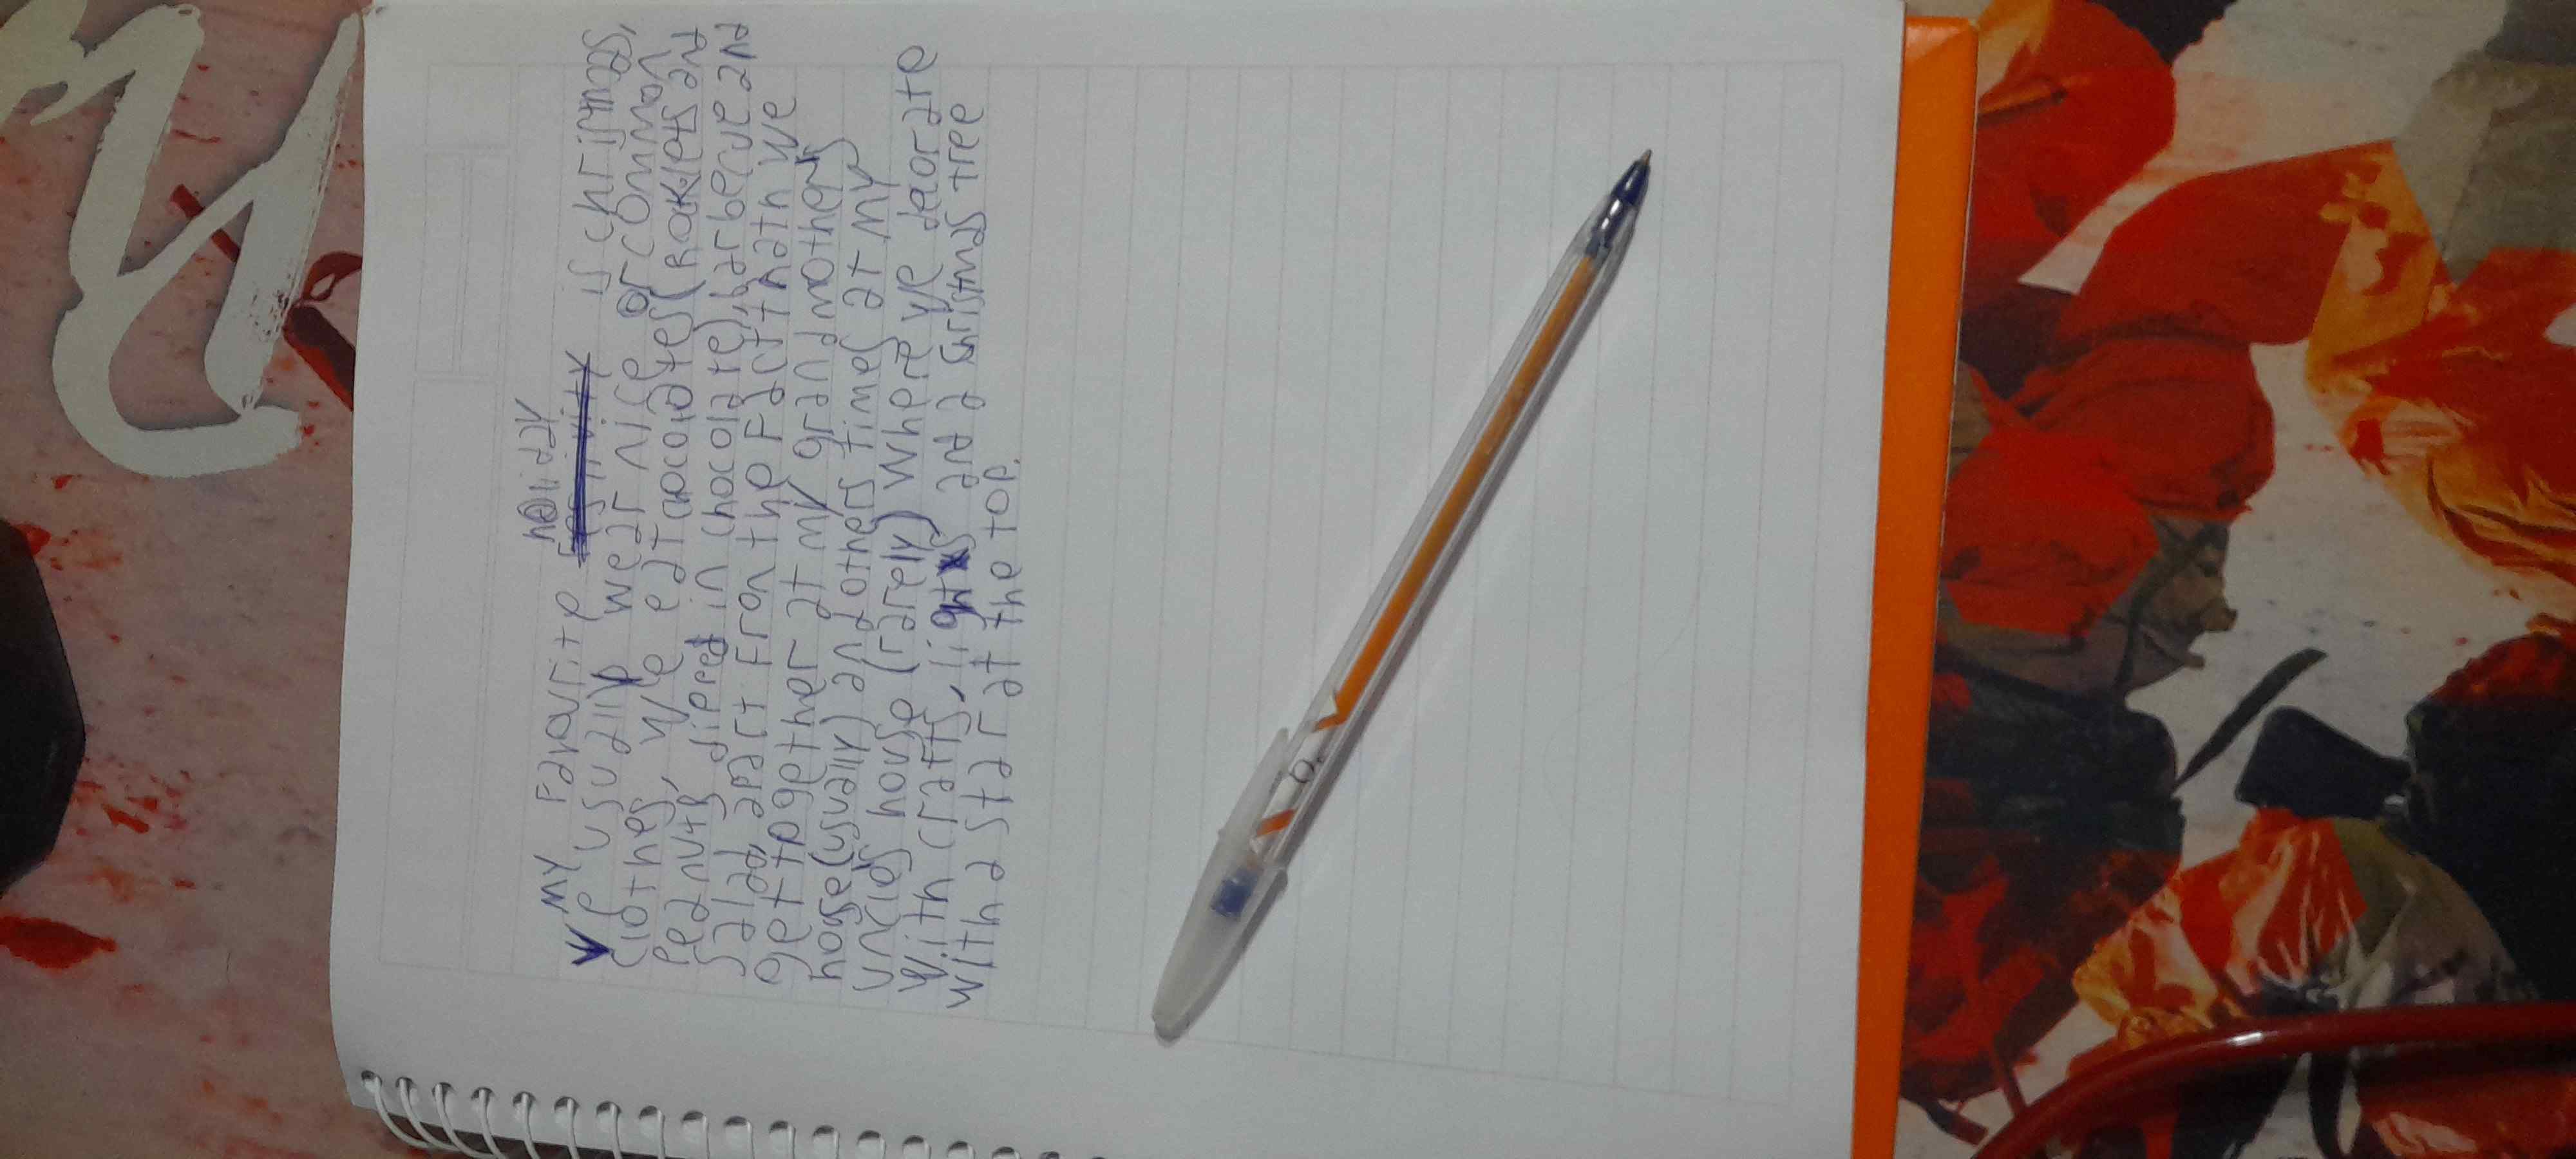 holiday
My Favourite is christmas,
we usually wear nice or common
clothes, we eat chocolates (Rocklets and
peanuts diered in chocolate), barbecue and
salad, apart from the fact that we
get together at my grandmother's
house (usually) and others times at my
uncle's house (rarely) where we deorate
with crafts, lights and a christmas tree
with a star at the top.